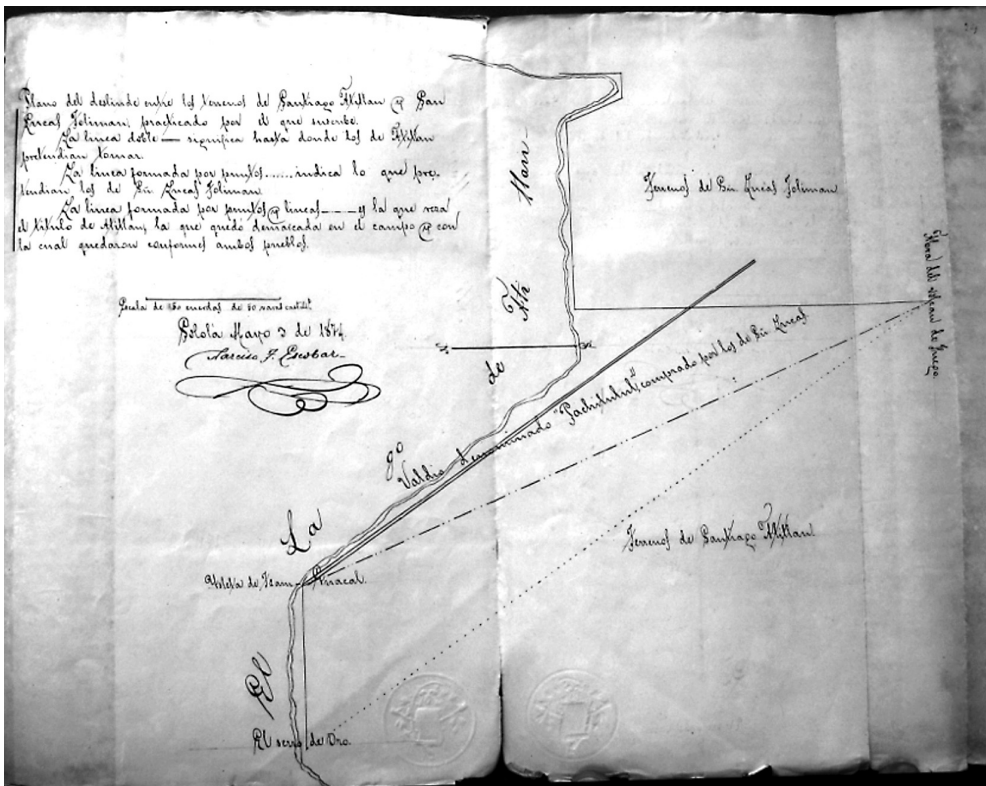 Plano del deslinde entre los terrenos de Santiago Atitlan @ San
Lucas Toliman, practicado por el que suscribe.
La linea doble — significa hasta donde los de Atitlan
pretendian tomar.
La linea formada por puntos ...... indica lo que pre-
tendian los de Sn Lucas Toliman
La linea formada por puntos @ lineas —·— es la que reza
el titulo de Atitlan, la que quedó demarcada en el campo @ con
la cual quedaron conformes ambos pueblos.
Escala de 150 cuerdas de 50 varas castills
Sololá Mayo 3 de 1874
Narciso J. Escobar
Terrenos de Sn Lucas Toliman
Valdio denominado "Pachitulul" comprado por los de Sn Lucas
Terrenos de Santiago Atitlan
El La go de Atitlan
El serro de Oro